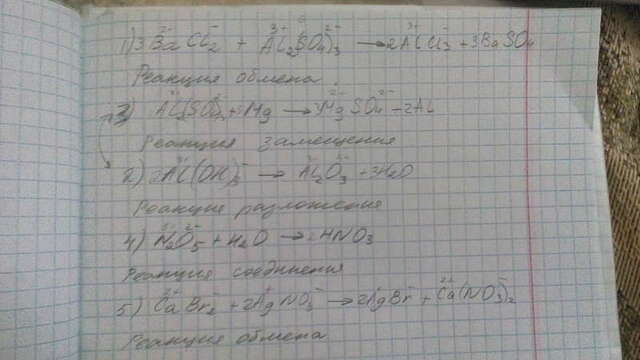 1) 3BaCl₂ + Al₂(SO₄)₃ → 2AlCl₃ + 3BaSO₄
Реакция обмена.
3) Al₂(SO₄)₃ + 3Mg → 3MgSO₄ + 2Al
Реакция замещения
2) 2Al(OH)₃ → Al₂O₃ + 3H₂O
Реакция разложения
4) N₂O₅ + H₂O → 2HNO₃
Реакция соединения
5) CaBr₂ + 2AgNO₃ → 2AgBr + Ca(NO₃)₂
Реакция обмена